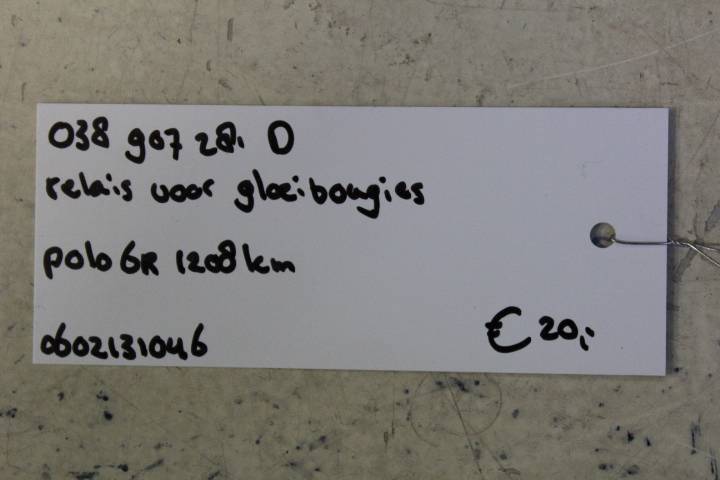 038 907 281 D
relais voor gloeibougies
polo 6R 1208 km
0602131046
€ 20,-